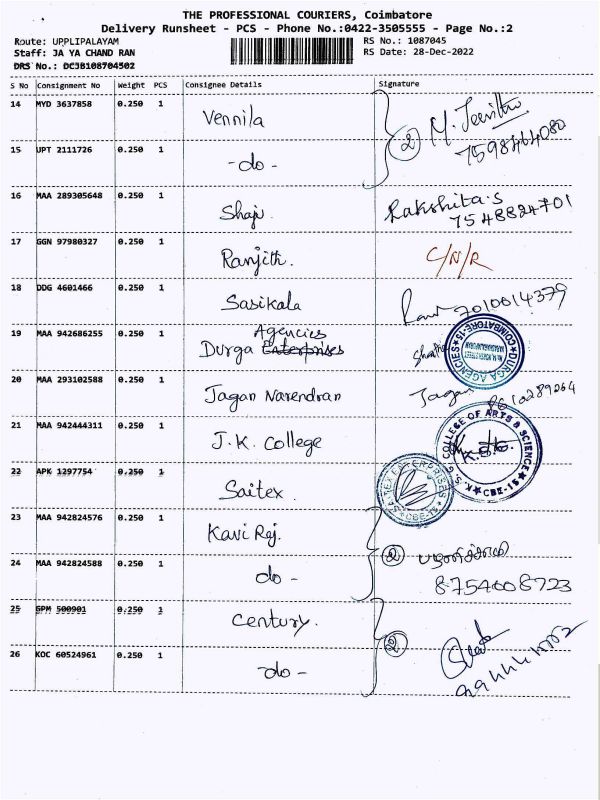 THE PROFESSIONAL COURIERS, Coimbatore
Delivery Runsheet - PCS - Phone No.:0422-3505555 - Page No.:2
Route: UPPLIPALAYAM
Staff: JA YA CHAND RAN
DRS No.: DCJB108704502
RS No.: 1087045
RS Date: 28-Dec-2022
S No Consignment No Weight PCS Consignee Details Signature
14 MYD 3637858 0.250 1 Vennila
15 UPT 2111726 0.250 1 -do-
② M. 7598464080
16 MAA 289305648 0.250 1 Shaji Rakshita.S
7548824701
17 GGN 97980327 0.250 1 Ranjith. C/N/R
18 DDG 4601466 0.250 1 Sasikala 7010014379
19 MAA 942686255 0.250 1 Durga Enterprises Agencies
DURGA AGENCIES COIMBATORE-15
20 MAA 293102588 0.250 1 Jagan Narendran Jagan
21 MAA 942444311 0.250 1 J.K. College
K.S.G COLLEGE OF ARTS & SCIENCE CBE-15
22 APK 1297754 0.250 1 Saitex.
SAITEX ENTERPRISES CBE-15
23 MAA 942824576 0.250 1 Kavi Raj.
24 MAA 942824588 0.250 1 do -
② 8754008723
25 GPM 500901 0.250 1 Century.
26 KOC 60524961 0.250 1 -do-
②